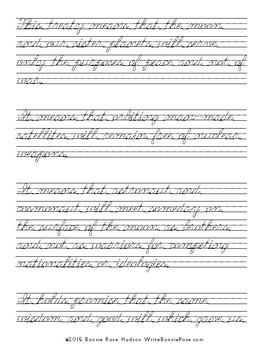 This treaty means that the moon
and our sister planets will serve
only the purposes of peace and not of
war.
It means that orbiting man-made
satellites will remain free of nuclear
weapons.
It means that astronaut and
cosmonaut will meet someday on
the surface of the moon as brothers
and not as warriors for competing
nationalities or ideologies.
It holds promise that the same
wisdom and good will which gave us
©2015 Bonnie Rose Hudson WriteBonnieRose.com